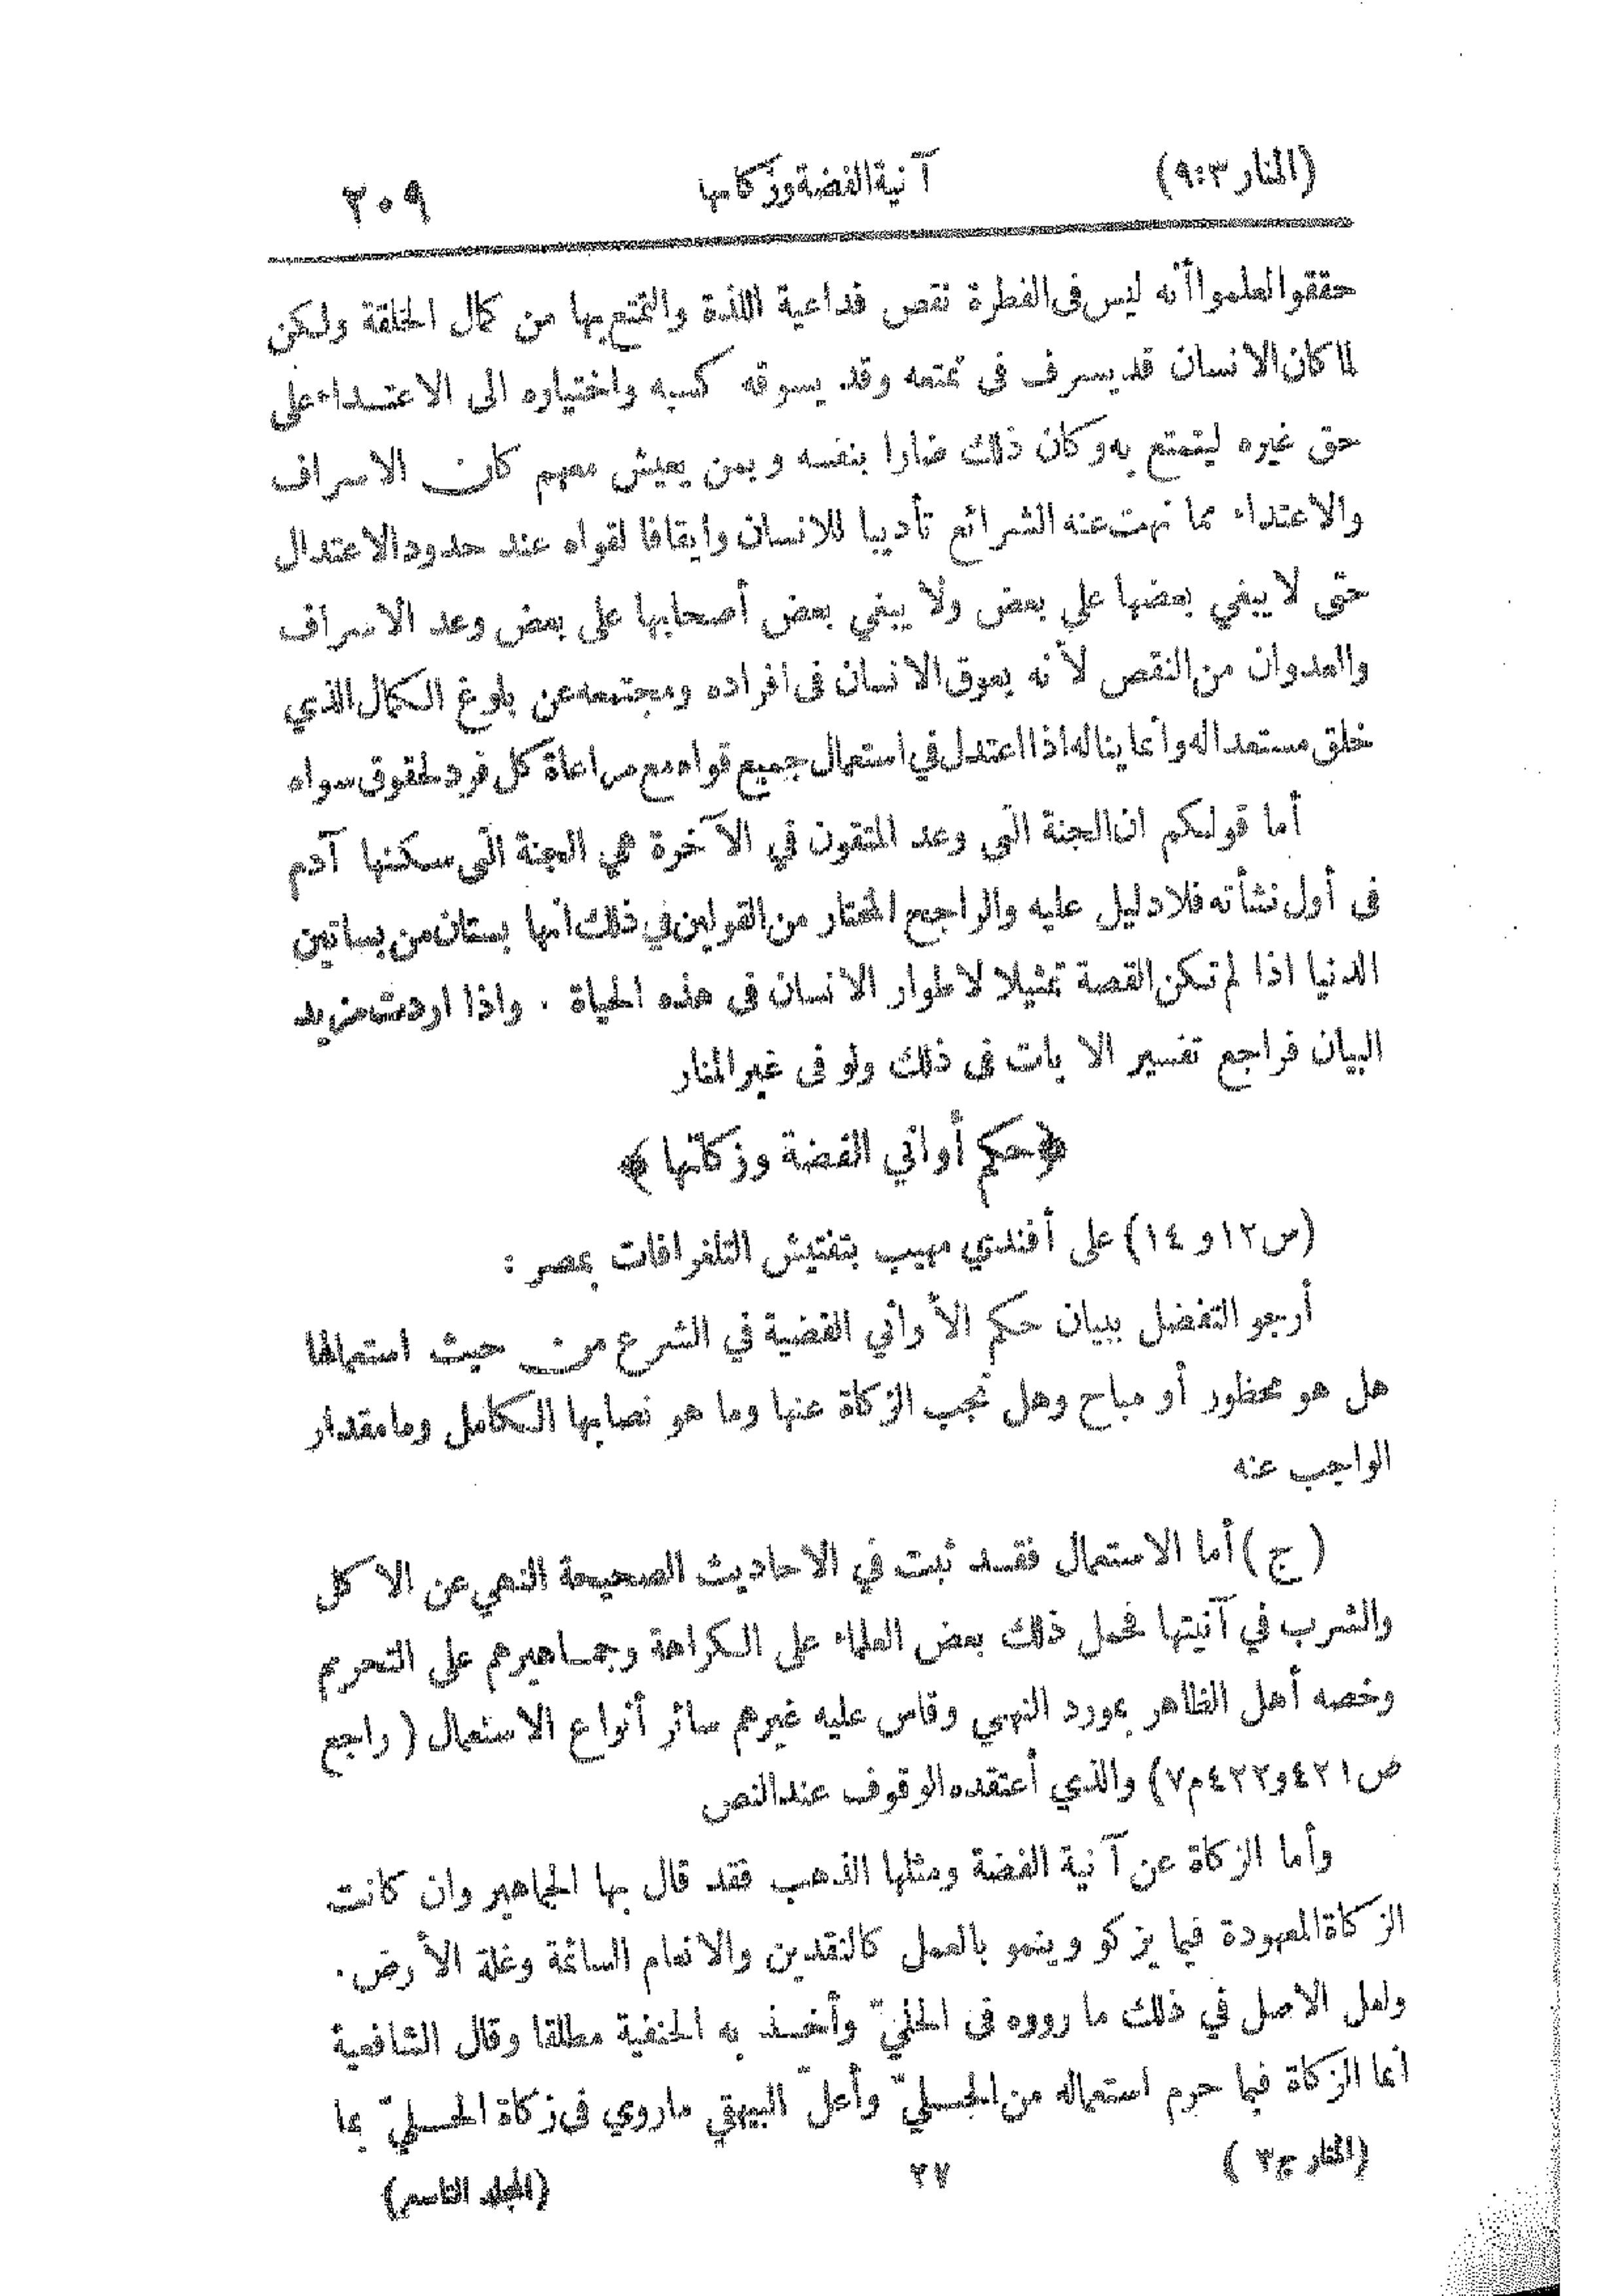 (المنار ٣:٩)
آنية الفضة وزكاتها
٢٠٩
حققوا لعلموا أنه ليس فى الفطرة نقص فداعية اللذة والتمتع بها من كمال الخلقة ولكن
لما كان الانسان قد يسرف فى تمتعه وقد يسوقه كسبه واختياره الى الاعتداء على
حق غيره ليتمتع به وكان ذلك ضارا بنفسه وبمن يعيش معهم كان الاسراف
والاعتداء مما نهت عنه الشرائع تأديبا للانسان وايقافا لقواه عند حدود الاعتدال
حتى لا يبغي بعضها على بعض ولا يبغي بعض أصحابها على بعض وعد الاسراف
والعدوان من النقص لأنه يعوق الانسان فى افراده ومجتمعه عن بلوغ الكمال الذي
خلق مستعدا له وانما يناله اذا اعتدل في استعمال جميع قواه مع مراعاة كل فرد لحقوق سواه
أما قولكم ان الجنة التى وعد المتقون في الآخرة هي الجنة التى سكنها آدم
فى أول نشأته فلا دليل عليه والراجح المختار من القولين في ذلك انها بستان من بساتين
الدنيا اذا لم تكن القصة تمثيلا لاطوار الانسان فى هذه الحياة . واذا اردت مزيد
البيان فراجع تفسير الآيات فى ذلك ولو فى غير المنار
﴿حكم أواني الفضة وزكاتها﴾
(س١٢ و ١٤) على أفندي مهيب بتفتيش التلغرافات بمصر :
أرجو التفضل ببيان حكم الأواني الفضية في الشرع من حيث استعمالها
هل هو محظور أو مباح وهل تجب الزكاة عنها وما هو نصابها الكامل وما مقدار
الواجب عنه
(ج) أما الاستعمال فقد ثبت في الاحاديث الصحيحة النهي عن الاكل
والشرب في آنيتها فحمل ذلك بعض العلماء على الكراهة وجماهيرهم على التحريم
وخصه أهل الظاهر بمورد النهي وقاس عليه غيرهم سائر أنواع الاستعمال ( راجع
ص٤٢١ و٤٢٢ م٧) والذي أعتقده الوقوف عند النص
وأما الزكاة عن آنية الفضة ومثلها الذهب فقد قال بها الجماهير وان كانت
الزكاة المعهودة فيما يزكو وينمو بالعمل كالنقدين والانعام السائمة وغلة الأرض.
ولعل الاصل في ذلك ما رووه فى الحليّ وأخذ به الحنفية مطلقا وقال الشافعية
انما الزكاة فيما حرم استعماله من الحليّ وأعلّ البيهقي ماروي فى زكاة الحليّ بما
(المنار ج٣ )
٢٧
(المجلد التاسع)